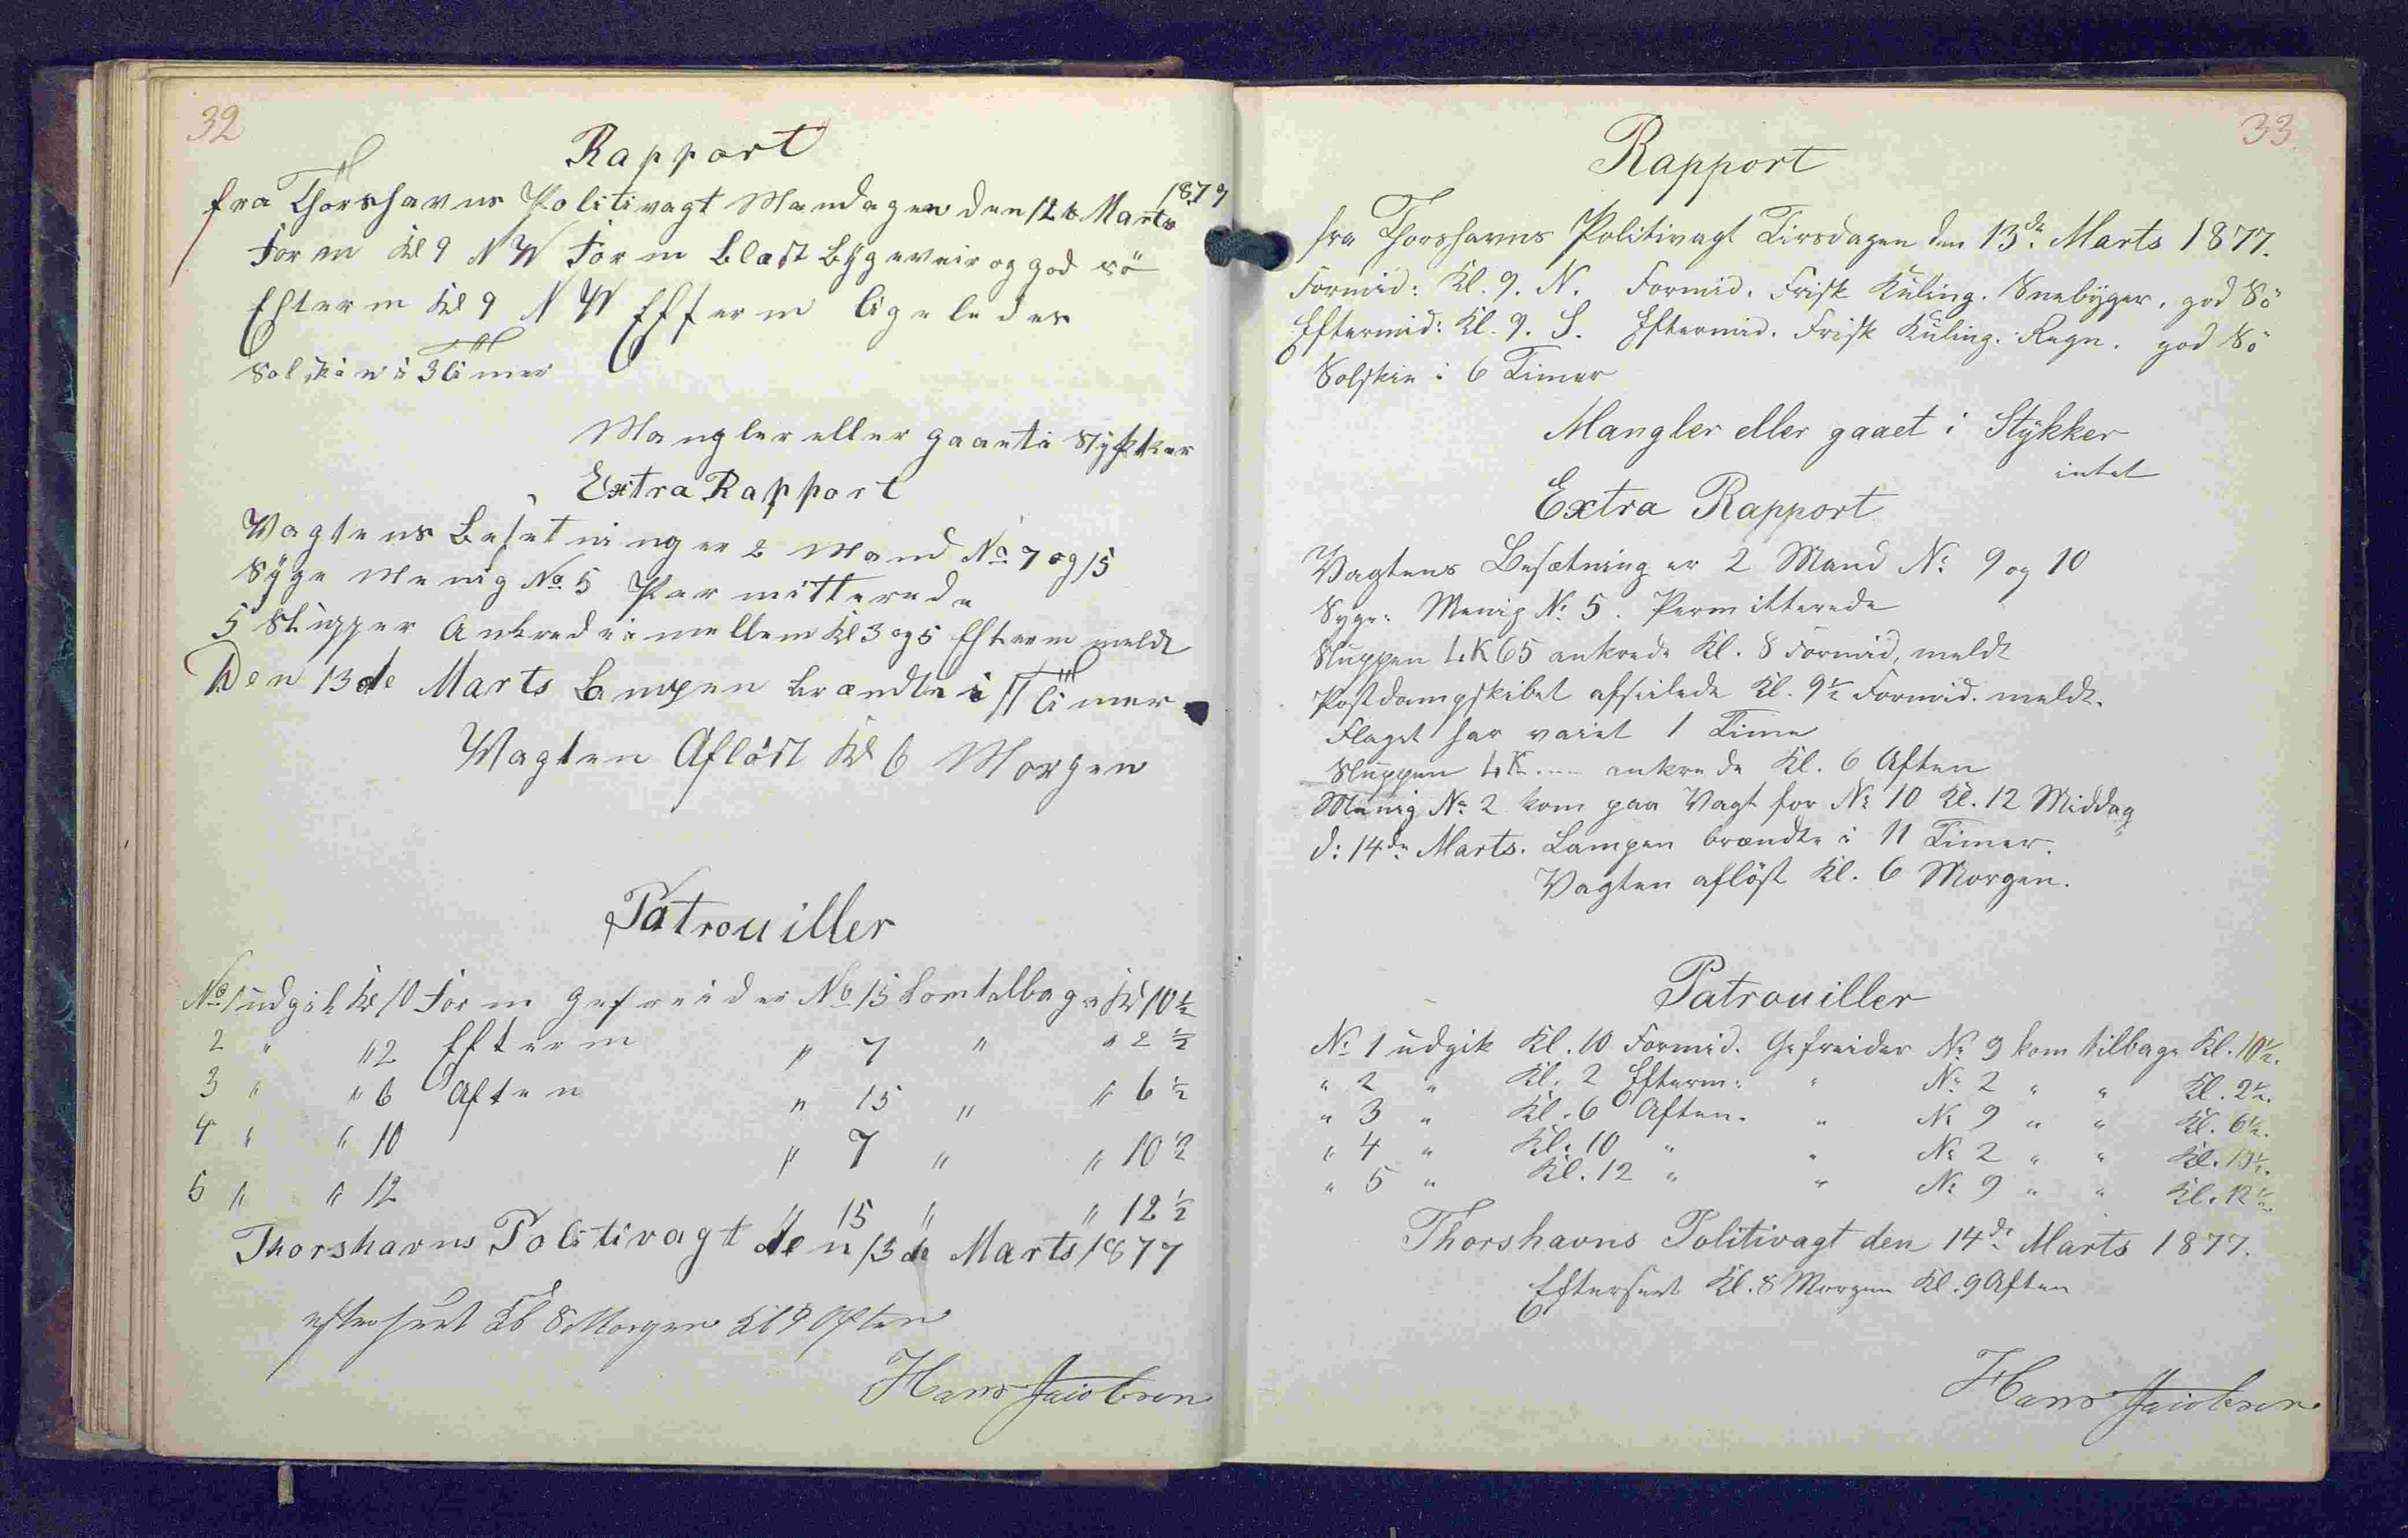 32
Rapport
fra Thorshavns Politivagt Mandagen den 12te Marts 1877
Form Kl 9 NW Form Blæst Bygeveir og god Sö
Efterm Kl 9 NW Efterm ligeledes
Solskin i 3 Timer
Mangler eller gaaet i Stykker
Extra Rapport
Vagtens Besetning er 2 Mand No 7 og 15
Syge Menig No 5 Permitterede
5 Slupper Ankrede imellem Kl 3 og 5 Efterm meldt
Den 13de Marts Lampen brændte i 11 Timer
Vagten Aflöst Kl 6 Morgen
Patrouiller
No 1 udgik Kl 10 Form Gefreider No 15 kom tilbage Kl 10½
2 " " 2 Efterm " 7 " " 2½
3 " " 6 Aften " 15 " " 6½
4 " " 10 " 7 " " 10½
5 " " 12 " 15 " " 12½
Thorshavns Politivagt den 13de Marts 1877
efterseet Kl 8 Morgen Kl 9 Aften
Hans Jacobsen
33
Rapport
fra Thorshavns Politivagt Tirsdagen den 13de Marts 1877.
Formid: Kl. 9. N. Formid. Frisk Kuling. Snebyger. god Sö
Eftermid: Kl. 9. S. Eftermid. Frisk Kuling. Regn. god Sö
Solskin i 6 Timer
Mangler eller gaaet i Stykker
intet
Extra Rapport
Vagtens Besætning er 2 Mand No 9 og 10
Syge: Menig No 5. Permitterede
Sluppen LK 65 ankrede Kl. 8 Formid, meldt
Postdampskibet afseilede Kl. 9½ Formid. meldt.
Flaget har vaiet 1 Time
Sluppen LK .... ankrede Kl. 6 Aften
Menig No 2 kom paa Vagt for No 10 Kl. 12 Middag
d: 14de Marts. Lampen brændte i 11 Timer.
Vagten aflöst Kl. 6 Morgen.
Patrouiller
No 1 udgik Kl. 10 Formid. Gefreider No 9 kom tilbage Kl. 10½.
" 2 " Kl. 2 Efterm: " No 2 " " Kl. 2½.
" 3 " Kl. 6 Aften. " No 9 " " Kl. 6½.
" 4 " Kl. 10 " " No 2 " " Kl. 10½.
" 5 " Kl. 12 " " No 9 " " Kl. 12½
Thorshavns Politivagt den 14de Marts 1877.
Efterseet Kl. 8 Morgen Kl. 9 Aften
Hans Jacobsen